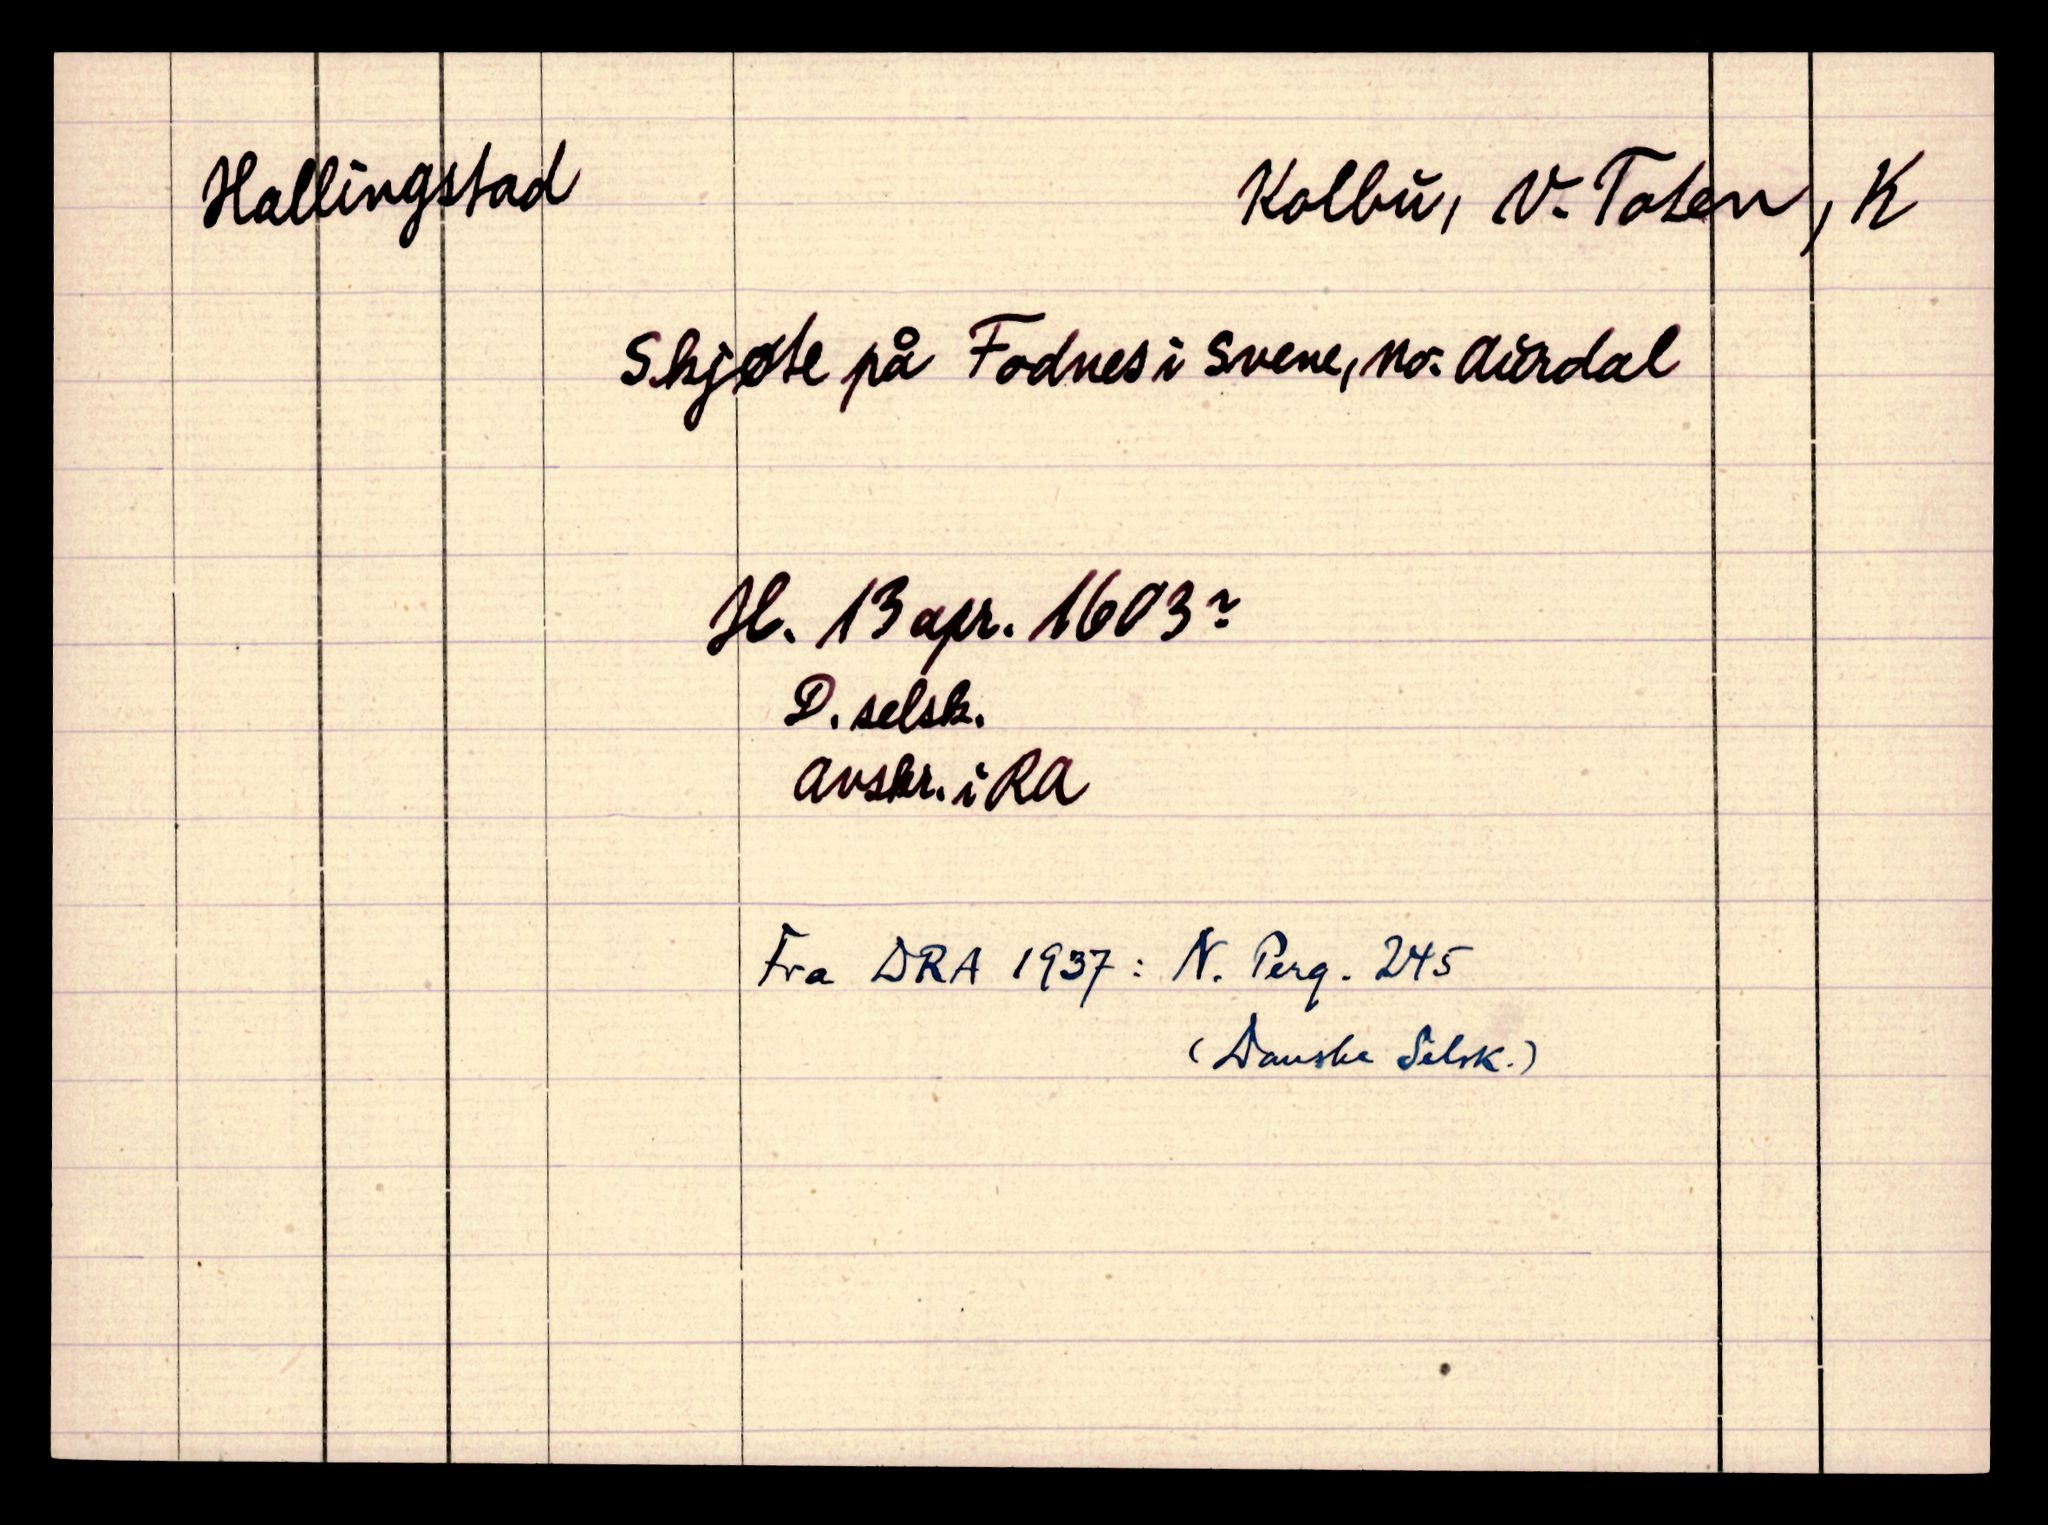 Hallingstad Kolbu, V. Toten, K
Skjøte på Fodnes i Svene, No. Aurdal
H. 13 apr. 1603
D. selsk.
Avskr. i RA
Fra DRA 1937: N. Perg. 245
(Danske Selsk.)